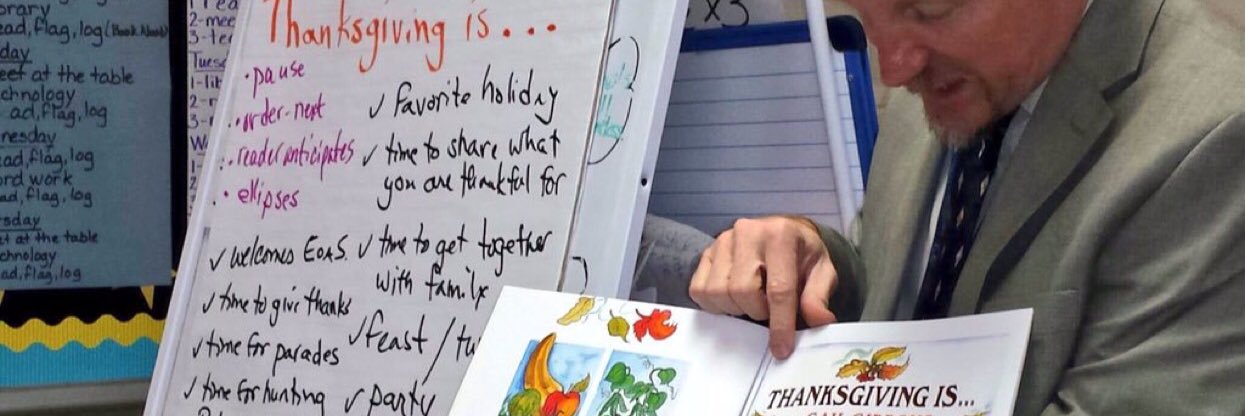 ad, flag, log (Book About)
day
eet at the table
chnology
ad, flag, log
nesday
ead, flag, log
ord work
ad, flag, log
sday
t at the table
chnology
ad, flag, log
2-mee
Tues
1-lib
Thanksgiving is...
• pause
• order-next
• reader anticipates
• ellipses
✓ favorite holiday
✓ time to share what
you are thankful for
✓ welcomes
✓ time to get together
with family
✓ time to give thanks
✓ time for parades
✓ feast / tu
✓ time for hunting
✓ party
x3
THANKSGIVING IS...